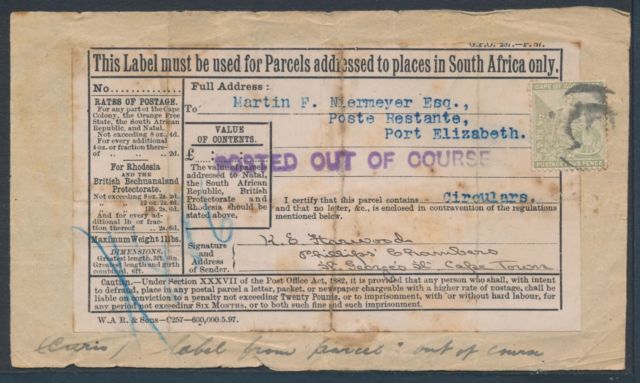 G.P.O. 237.—P. 57.
This Label must be used for Parcels addressed to places in South Africa only.
No.
RATES OF POSTAGE.
For any part of the Cape
Colony, the Orange Free
State, the South African
Republic, and Natal.
Not exceeding 8 oz. 4d.
For every additional
4 oz. or fraction there-
of " " " 2d.
For Rhodesia
AND THE
British Bechuanaland
Protectorate.
Not exceeding 8 oz.
12 oz.
1lb.
And for every ad-
ditional lb or frac-
tion thereof
Maximum Weight 11lbs.
DIMENSIONS.
Greatest length, 3ft. 6in.
Greatest length and girth
combined, 6ft.
VALUE
OF CONTENTS.
£
The value of parcels
addressed to Natal,
the South African
Republic, British
Protectorate and
Rhodesia should be
stated above.
Full Address:
To
Martin F. Niermeyer Esq.,
Poste Restante,
Port Elizabeth.
POSTED OUT OF COURSE
I certify that this parcel contains Circulars.
and that no letter, &c., is enclosed in contravention of the regulations
mentioned below.
Signature
and
Address
of Sender.
K. E. Harwood
Phillips' Chambers
St George's St Cape Town
Caution.—Under Section XXXVII of the Post Office Act, 1882, it is provided that any person who shall, with intent
to defraud, place in any postal parcel a letter, packet, or newspaper chargeable with a higher rate of postage, shall be
liable on conviction to a penalty not exceeding Twenty Pounds, or to imprisonment, with or without hard labour, for
any period not exceeding Six Months, or to both such fine and such imprisonment.
W. A. R. & Sons—C257—600,000.5.97.
label from parcel "out of course
CAPE OF GOOD
POSTAGE PENCE